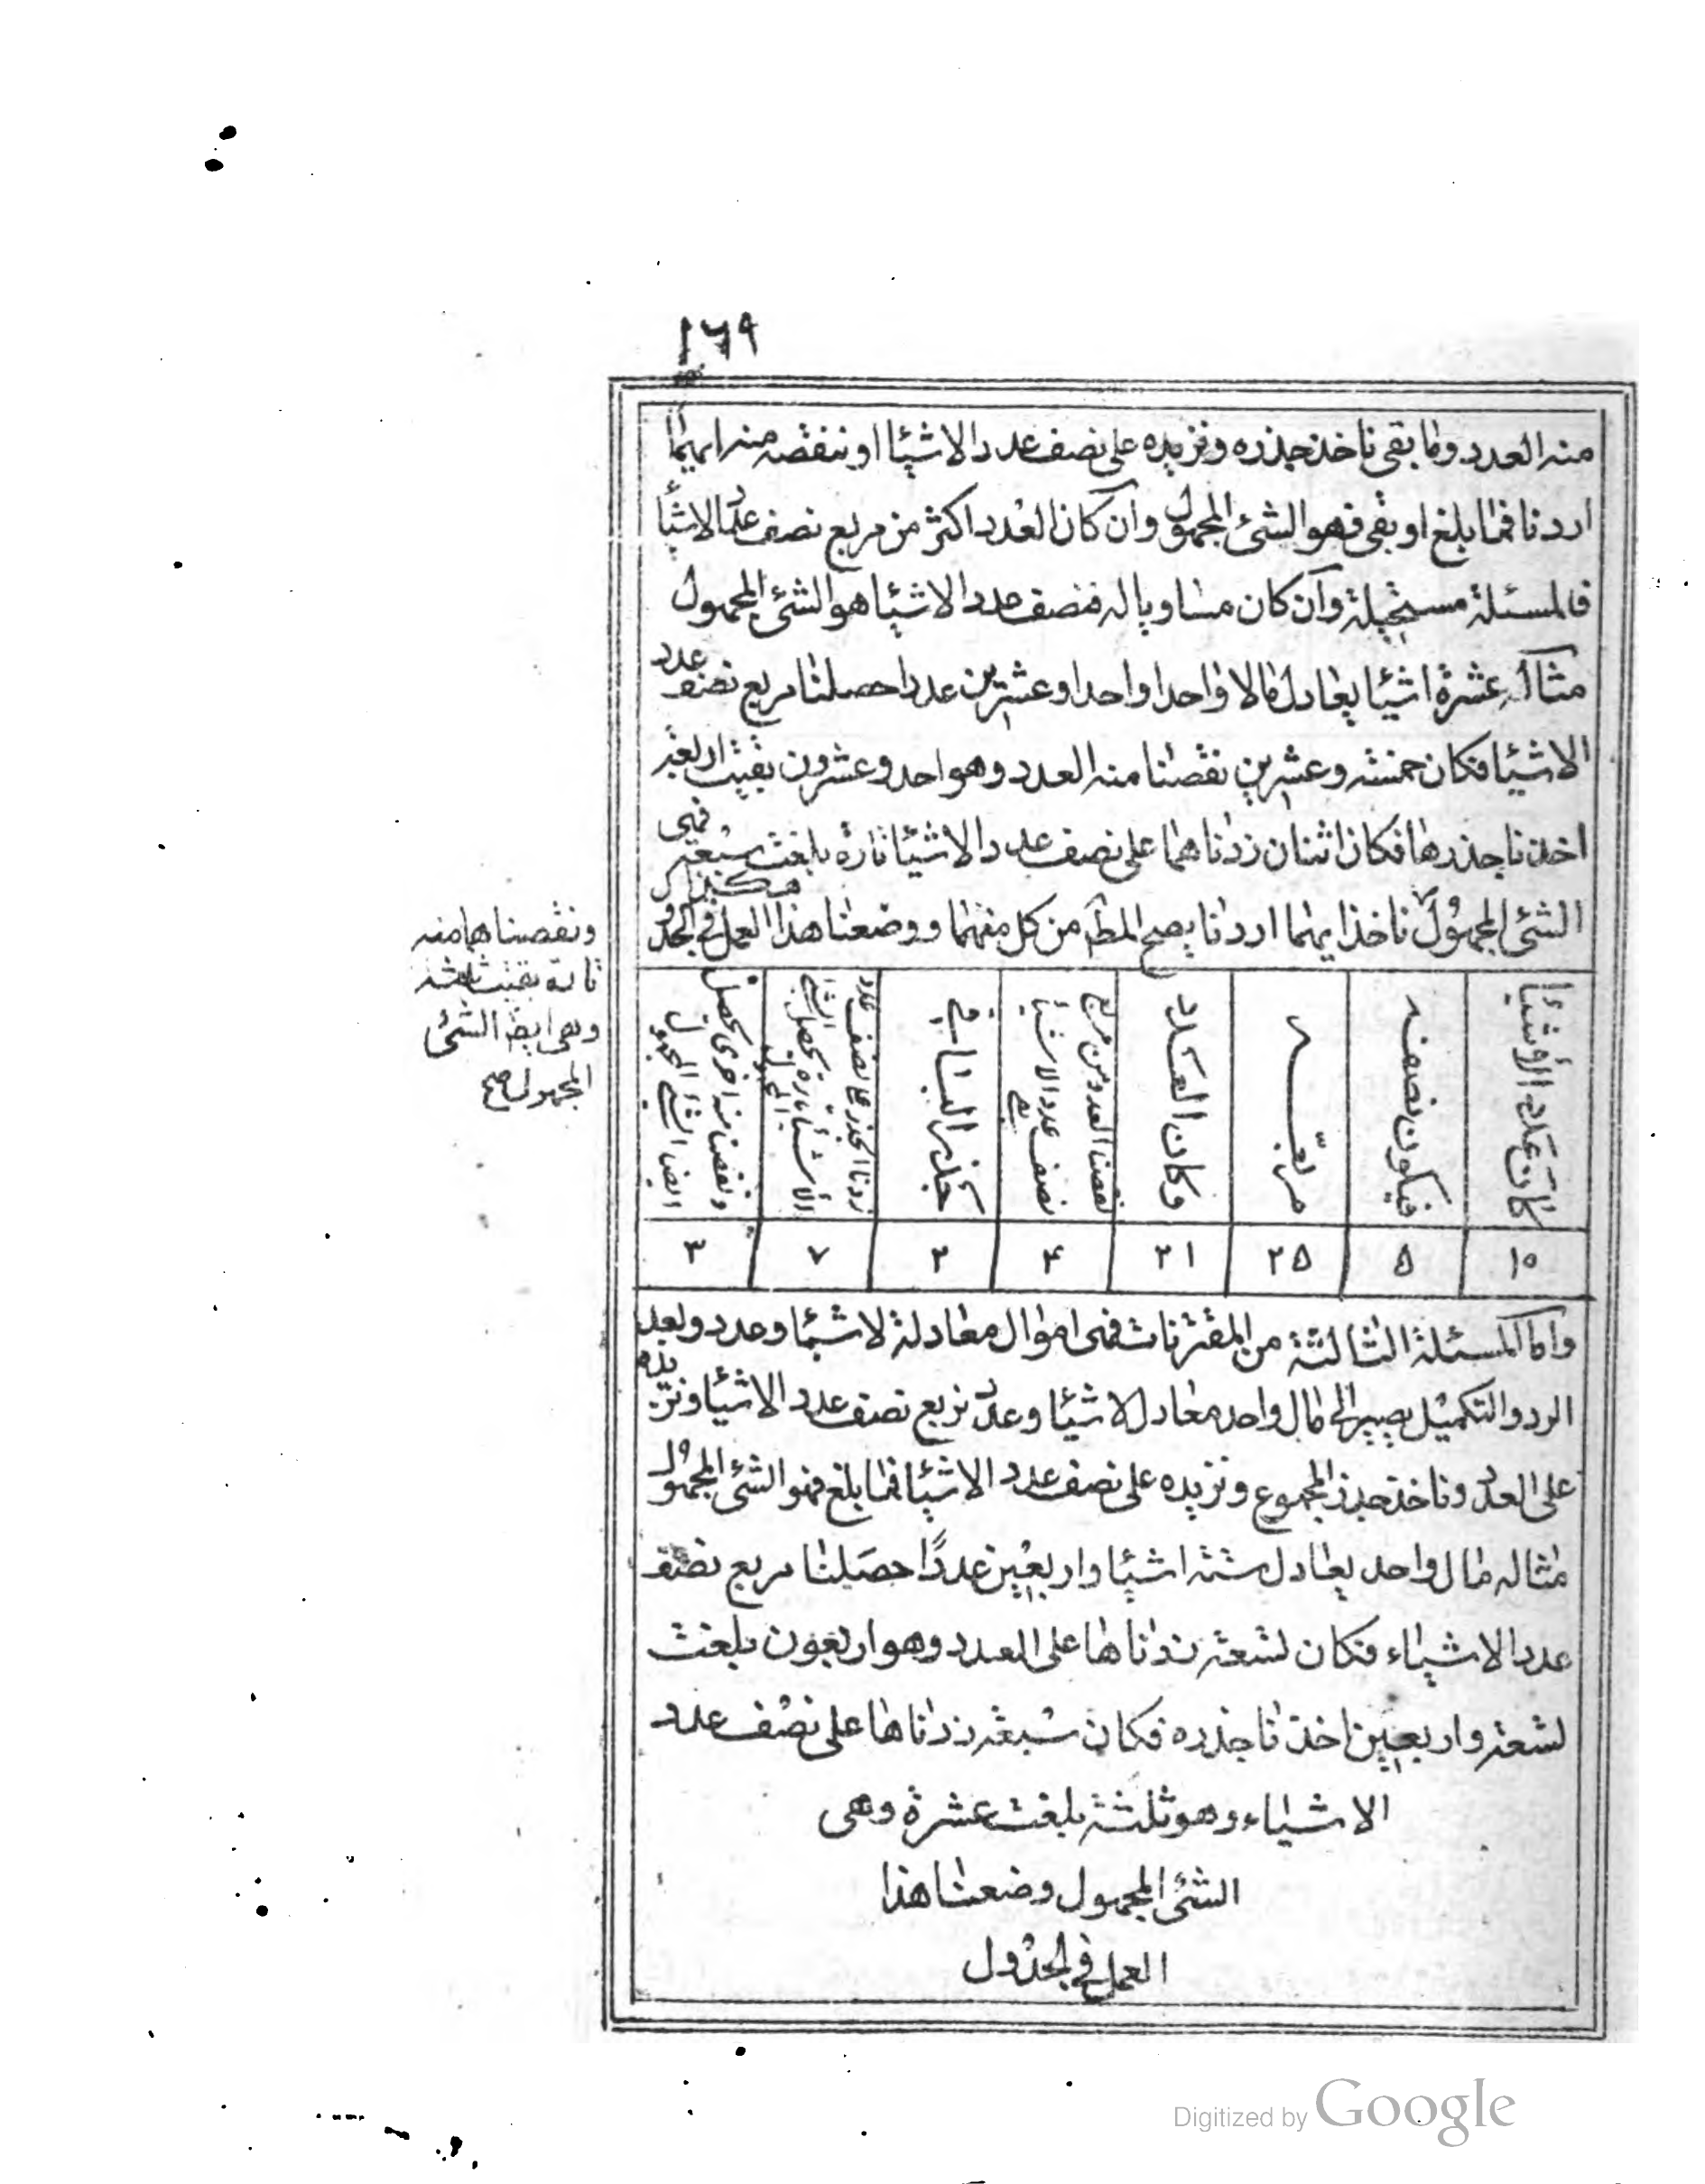 ١٦٩
منه العدد وما بقى ناخذ جذره ونزيده على نصف عدد الاشيا او ننقصه منه ايهما
اردنا فما بلغ او بقى فهو الشئ المجهول وان كان العدد اكثر من مربع نصف عدد الاشيا
فالمسئلة مستحيلة وان كان مساويا له فنصف عدد الاشيا هو الشئ المجهول
مثاله عشرة اشيا يعادل مالا واحدا واحدا وعشرين عددا حصلنا مربع نصف عدد
الاشيا فكان خمسة وعشرين نقصنا منه العدد وهو احد وعشرون بقيت اربعة
اخذنا جذرها فكان اثنان زدناهما على نصف عدد الاشيا تارة بلغت سبعة فهى
الشئ المجهول ناخذ ايهما اردنا يصح المط من كل منهما ووضعنا هذا العمل فى الجدول
ونقصناهما منه
تارة بقيت ثلثة
وهى ايضا الشئ
المجهول صح
كان عدد الاشيا
فيكون نصفه
مربعه
وكان العدد
نقصنا العدد من مربع
نصف عدد الاشيا بقى
جذر الباقى
زدنا الجذر على نصف عدد
الاشيا تارة يحصل الشئ
المجهول
ونقصنا منه اخرى يحصل
ايضا الشئ المجهول
١٠ ٥ ٢٥ ٢١ ۴ ٢ ٧ ٣
واما المسئلة الثالثة من المقترنات فهى اموال معادلة لاشيا وعدد وبعد
الرد والتكميل يصير الى مال واحد معادل لاشيا وعدد نربع نصف عدد الاشيا ونزيده
على العدد وناخذ جذر المجموع ونزيده على نصف عدد الاشيا فما بلغ فهو الشئ المجهول
مثاله مال واحد يعادل ستة اشيا واربعين عددًا حصلنا مربع نصف
عدد الاشياء فكان تسعة زدناها على العدد وهو اربعون بلغت
تسعة واربعين اخذنا جذره فكان سبعة زدناها على نصف عدد
الاشياء وهو ثلثة بلغت عشرة وهى
الشئ المجهول وضعنا هذا
العمل فى الجدول
Digitized by Google